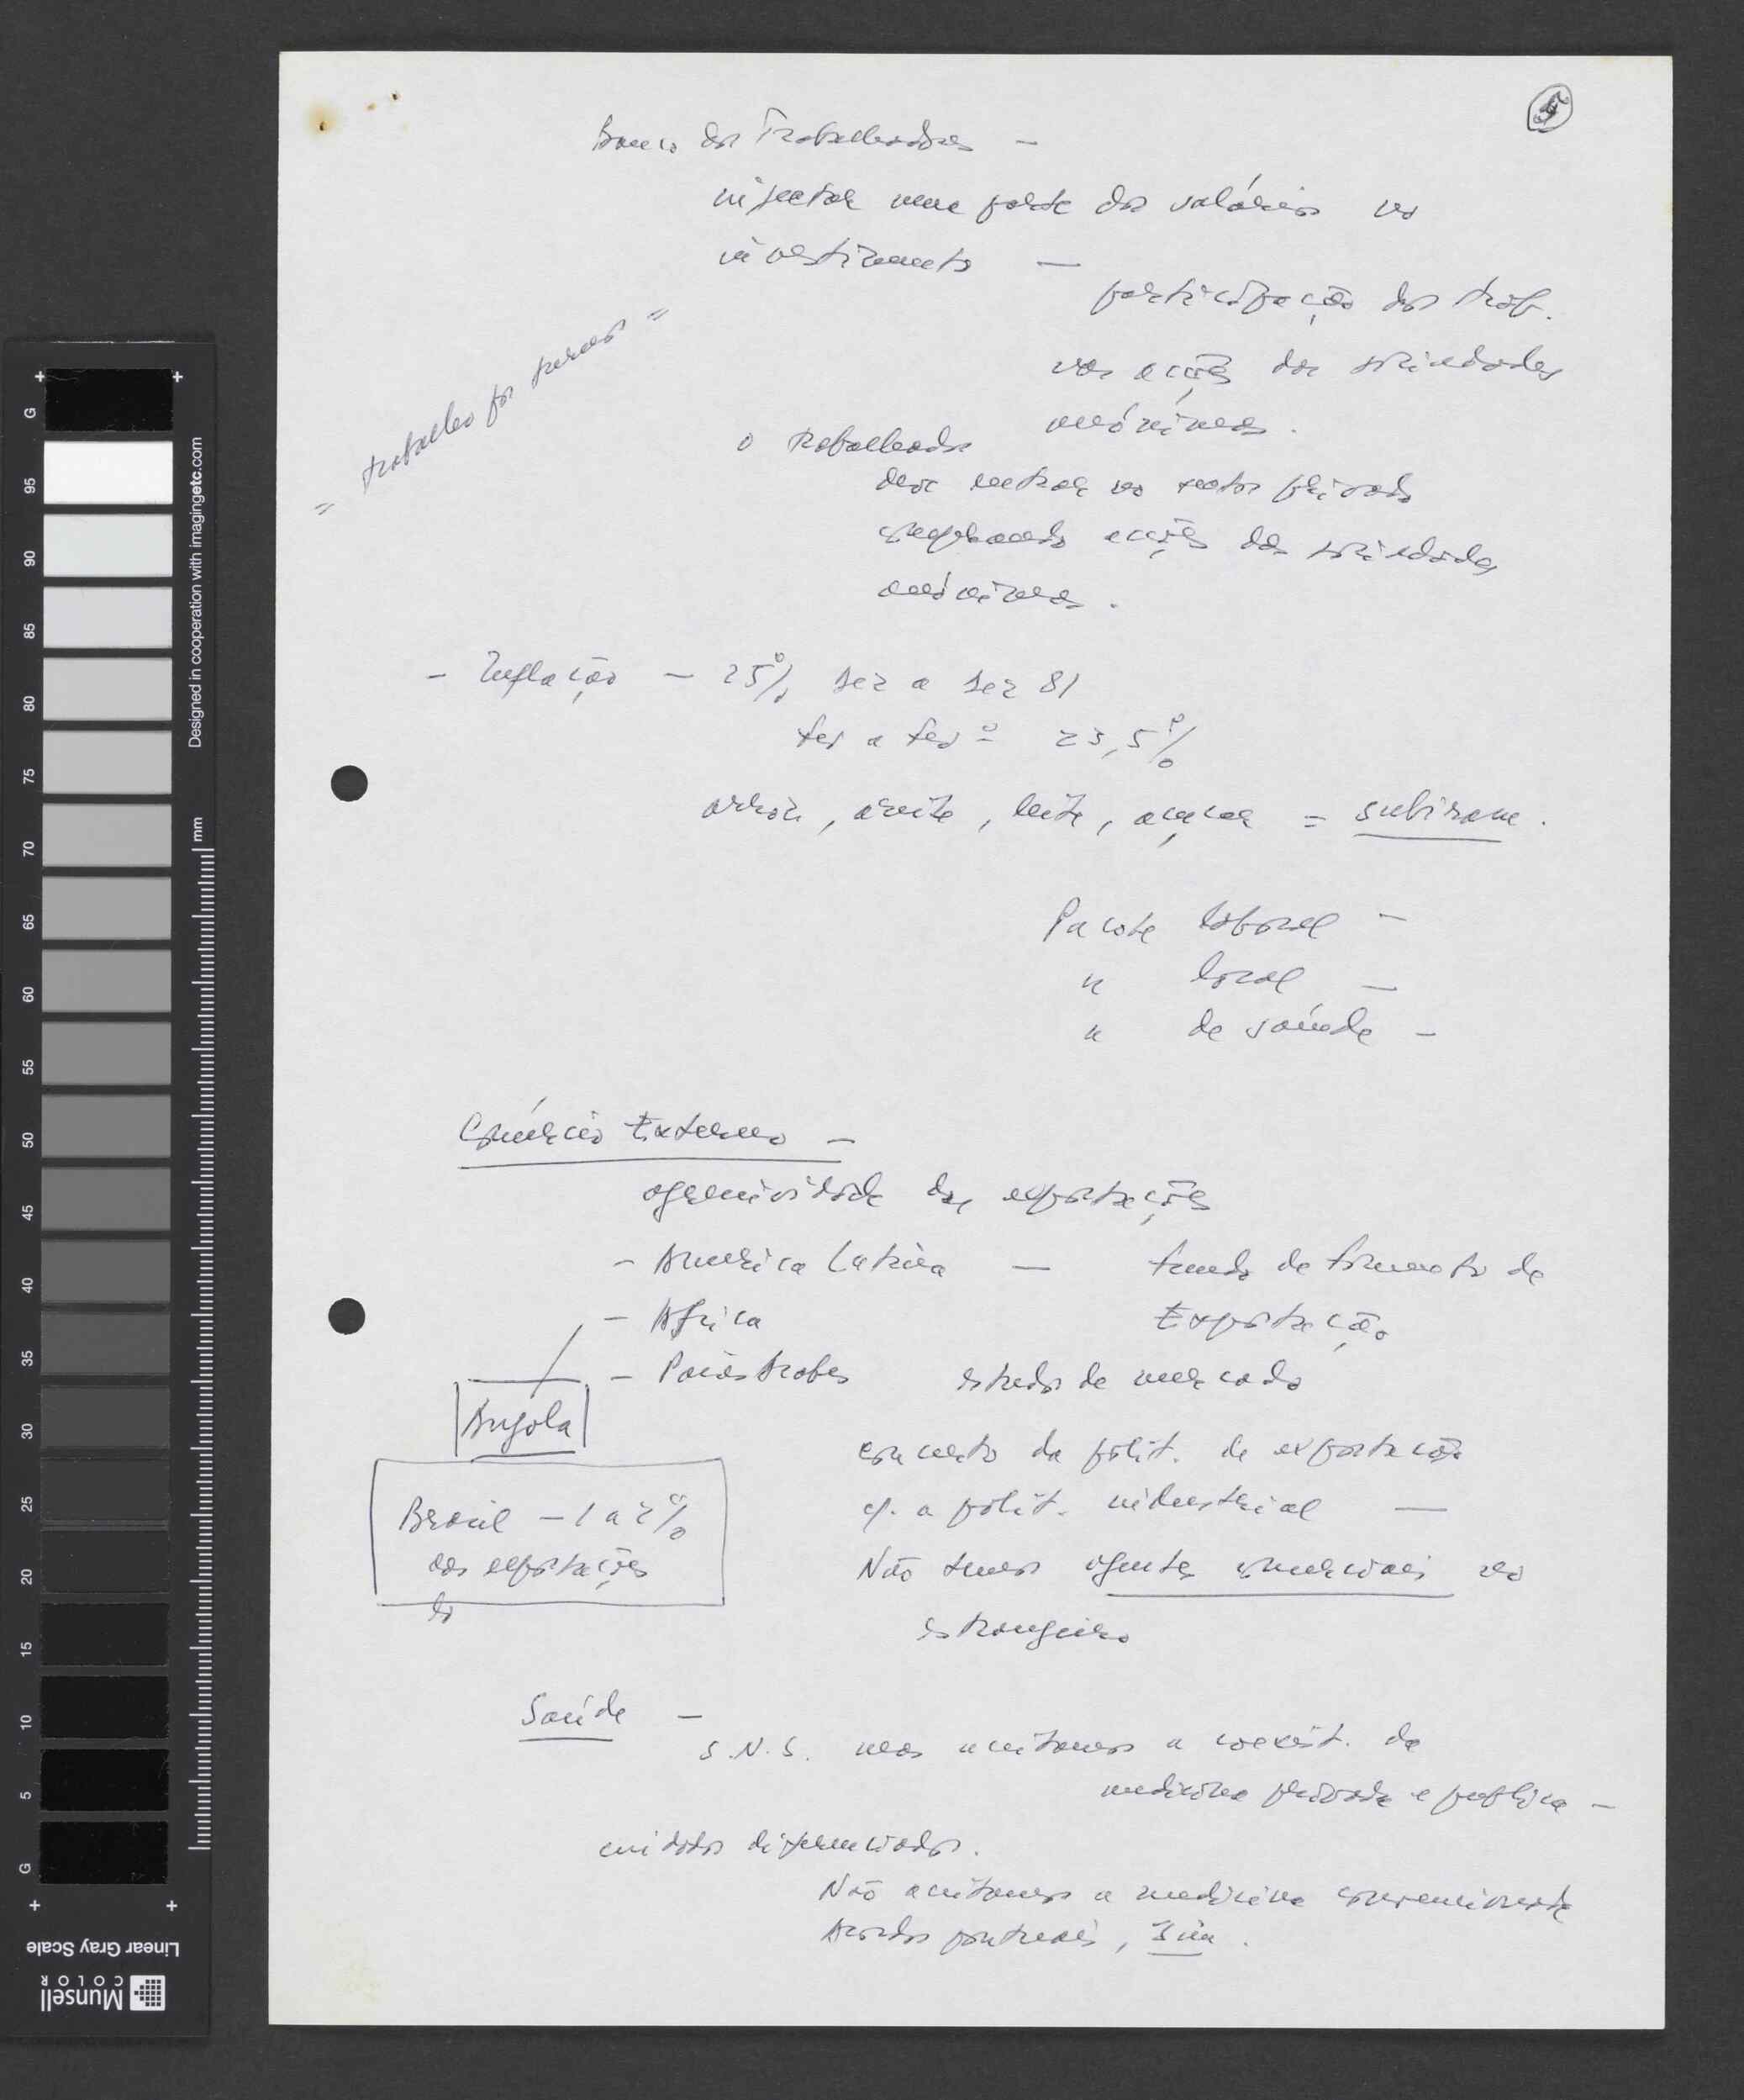 5
Banco dos Trabalhadores —
injectar uma parte dos salários no
investimento —
participação dos trab.
nas acções das sociedades
anónimas.
" trabalho por turnos "
o trabalhador
deve entrar no sector privado
comprando acções das sociedades
anónimas.
- Inflação — 25% dez a dez 81
fev a fev = 23,5%
arroz, azeite, leite, açucar = subiram.
Pacote laboral —
" local —
" de saúde —
Comércio Externo —
agressividade das exportações
- América Latina — Fundo de Fomento de
- Africa Exportação
- Países Arabes estudos de mercado
Angola
concerto da polit. de exportação
Brasil — 1 a 2%
c/. a polit. industrial —
das exportações
Não temos agentes comerciais no
estrangeiro
Saúde —
S.N.S. mas aceitamos a coexist. da
medicina privada e publica —
cuidados diferenciados.
Não aceitamos a medicina convencionada
Acordos pontuais, Sim.